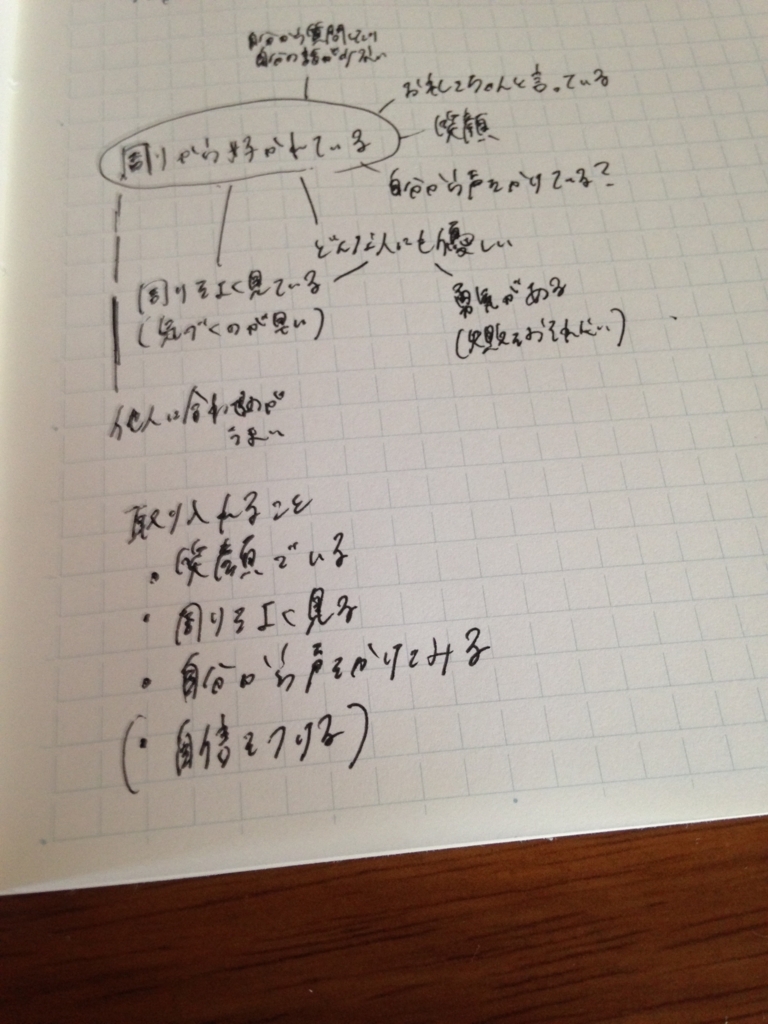 自分から質問してい
自分の話が少ない
お礼してちゃんと言っている
笑顔
周りから好かれている
自分から声をかけている?
どんな人にも優しい
周りをよく見ている
(気づくのが早い)
勇気がある
(失敗をおそれない)
他人に合わせるのが
うまい
取り入れること
・笑顔でいる
・周りをよく見る
・自分から声をかけてみる
(・自信をつける)